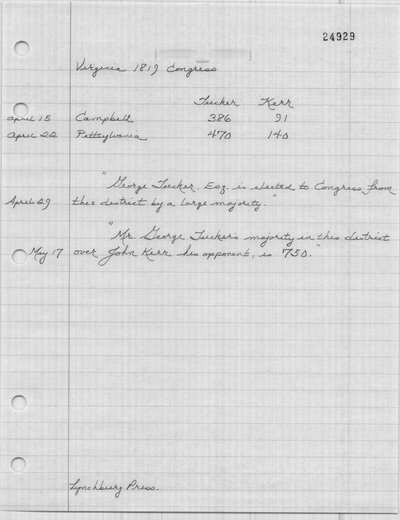 24929
Virginia 1819 Congress
Tucker Kerr
April 15 Campbell 386 91
April 22 Pittsylvania 470 140
"George Tucker, Esq. is elected to Congress from
April 29 this district by a large majority."
"Mr. George Tucker's majority in this district
May 17 over John Kerr his opponent, is 750."
Lynchburg Press.